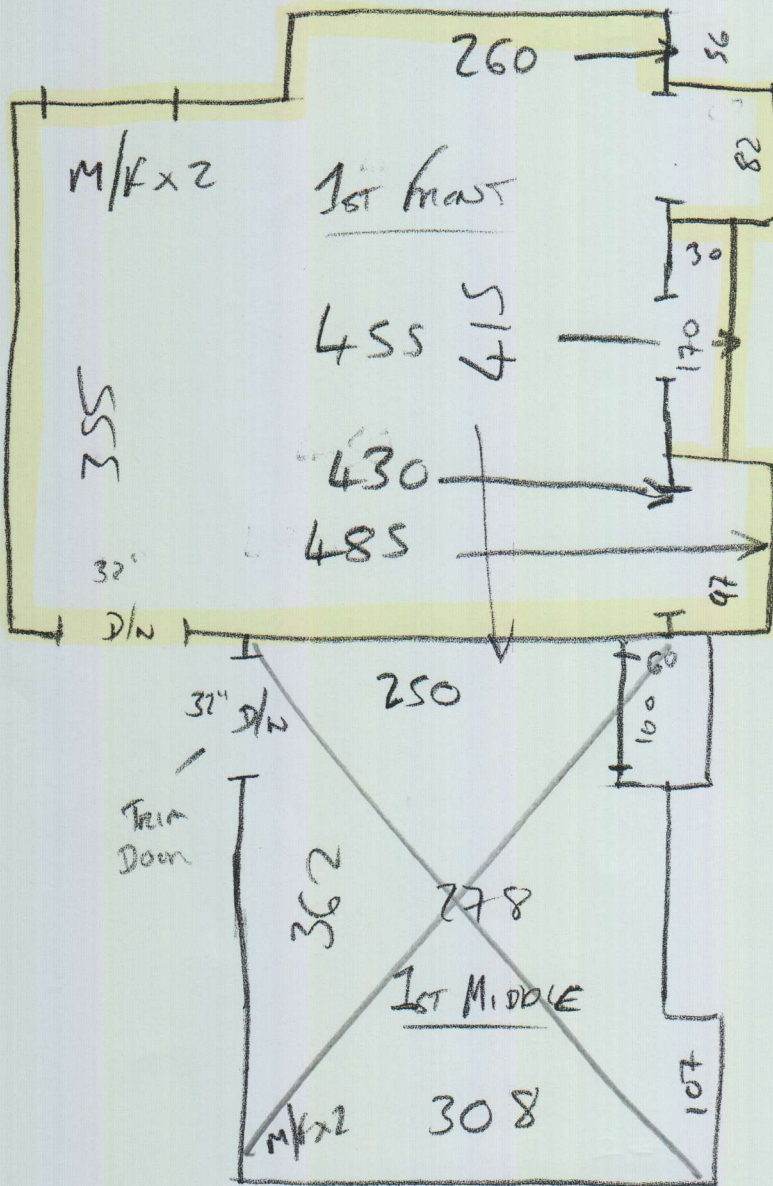 260
56
M/K x 2
1ST FRONT
82
30
455
415
170
355
430
485
32"
D/N
97
250
60
32" D/N
100
TRIM
DOOR
362
278
1ST MIDDLE
107
M/K x 2
308